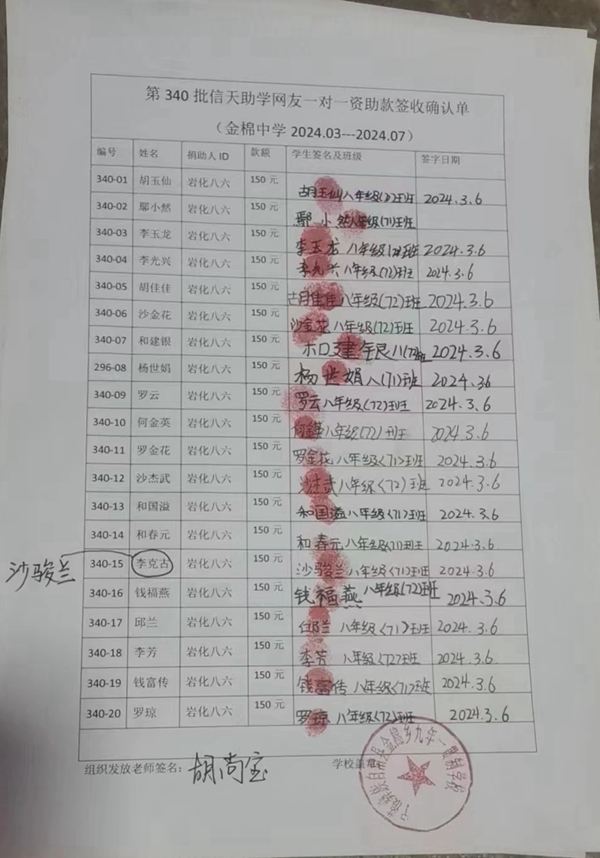 第 340 批信天助学网友一对一资助款签收确认单
（金棉中学 2024.03---2024.07）
编号 姓名 捐助人 ID 款额 学生签名及班级 签字日期
340-01 胡玉仙 岩化八六 150 元 胡玉仙八年级(72)班 2024.3.6
340-02 鄢小然 岩化八六 150 元 鄢小然八年级(71)班
340-03 李玉龙 岩化八六 150 元 李玉龙八年级(72)班 2024.3.6
340-04 李光兴 岩化八六 150 元 李光兴八年级(72)班 2024.3.6
340-05 胡佳佳 岩化八六 150 元 胡佳佳八年级(72)班 2024.3.6
340-06 沙金花 岩化八六 150 元 沙金花八年级(72)班 2024.3.6
340-07 和建银 岩化八六 150 元 和建银八(72)班 2024.3.6
296-08 杨世娟 岩化八六 150 元 杨世娟八(71)班 2024.3.6
340-09 罗云 岩化八六 150 元 罗云八年级(72)班 2024.3.6
340-10 何金英 岩化八六 150 元 何金英八年级(72)班 2024.3.6
340-11 罗金花 岩化八六 150 元 罗金花八年级<71>班 2024.3.6
340-12 沙杰武 岩化八六 150 元 沙杰武八年级<72>班 2024.3.6
340-13 和国溢 岩化八六 150 元 和国溢八年级<71>班 2024.3.6
340-14 和春元 岩化八六 150 元 和春元八年级<71>班 2024.3.6
沙骏兰 340-15 李克古 岩化八六 150 元 沙骏兰八年级<71>班 2024.3.6
340-16 钱福燕 岩化八六 150 元 钱福燕八年级(72)班 2024.3.6
340-17 邱兰 岩化八六 150 元 邱兰八年级<71>班 2024.3.6
340-18 李芳 岩化八六 150 元 李芳八年级<72>班 2024.3.6
340-19 钱富传 岩化八六 150 元 钱富传八年级<71>班 2024.3.6
340-20 罗琼 岩化八六 150 元 罗琼八年级<72>班 2024.3.6
组织发放老师签名: 胡尚宝 学校盖章:
金棉乡九年一贯制学校